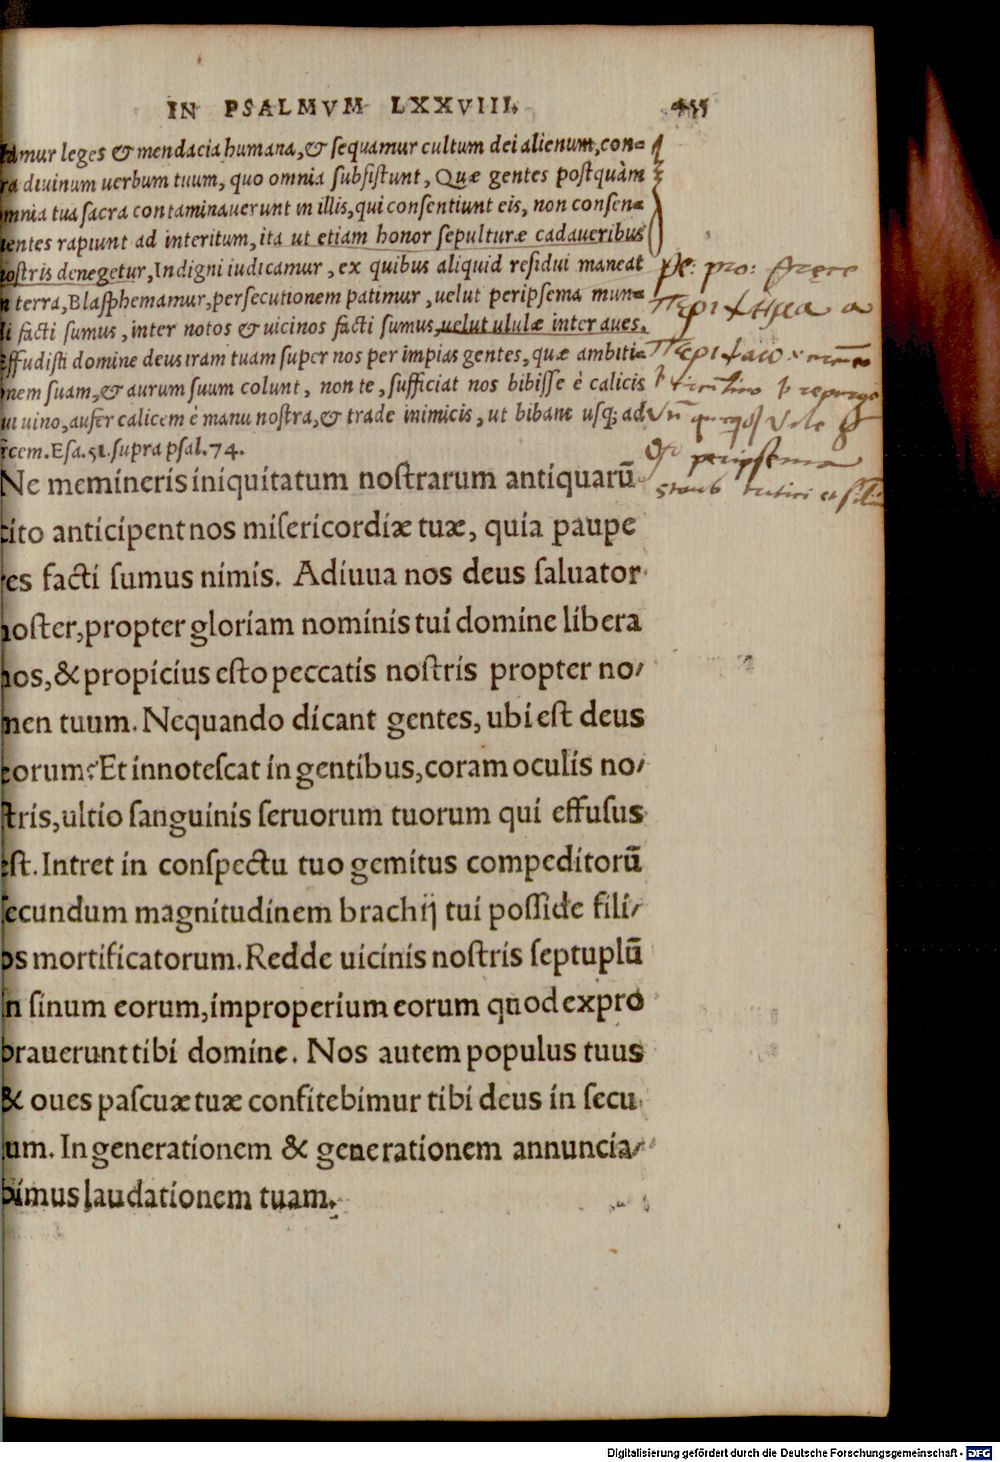 IN PSALMVM LXXVIII. 455
mur leges & mendacia humana, & sequamur cultum dei alienum, con=
ra diuinum uerbum tuum, quo omnia subsistunt, Quæ gentes postquàm
mnia tua sacra contaminauerunt in illis, qui consentiunt eis, non consen=
ientes rapiunt ad interitum, ita ut etiam honor sepulturæ cadaueribus
nostris denegetur, Indigni iudicamur, ex quibus aliquid residui maneat
n terra, Blasphemamur, persecutionem patimur, uelut peripsema mun=
di facti sumus, inter notos & uicinos facti sumus, uelut ululæ inter aues.
Effudisti domine deus iram tuam super nos per impias gentes, quæ ambiti=
nem suam, & aurum suum colunt, non te, sufficiat nos bibisse è calicis
ui uino, aufer calicem è manu nostra, & trade inimicis, ut bibant usq; ad
cem. Esa. 51. supra psal. 74.
Ne memineris iniquitatum nostrarum antiquarū
cito anticipent nos misericordiæ tuæ, quia paupe
res facti sumus nimis. Adiuua nos deus saluator
noster, propter gloriam nominis tui domine libera
nos, & propicius esto peccatis nostris propter no/
men tuum. Nequando dicant gentes, ubi est deus
eorum? Et innotescat in gentibus, coram oculis no/
stris, ultio sanguinis seruorum tuorum qui effusus
est. Intret in conspectu tuo gemitus compeditorū
secundum magnitudinem brachij tui posside fili/
os mortificatorum. Redde uicinis nostris septuplū
in sinum eorum, improperium eorum quod expro
brauerunt tibi domine. Nos autem populus tuus
& oues pascuæ tuæ confitebimur tibi deus in secu
um. In generationem & generationem annuncia/
bimus laudationem tuam.
pe: pro: græce
περιψημα a
περιψαω
peripsema
Digitalisierung gefördert durch die Deutsche Forschungsgemeinschaft - DFG